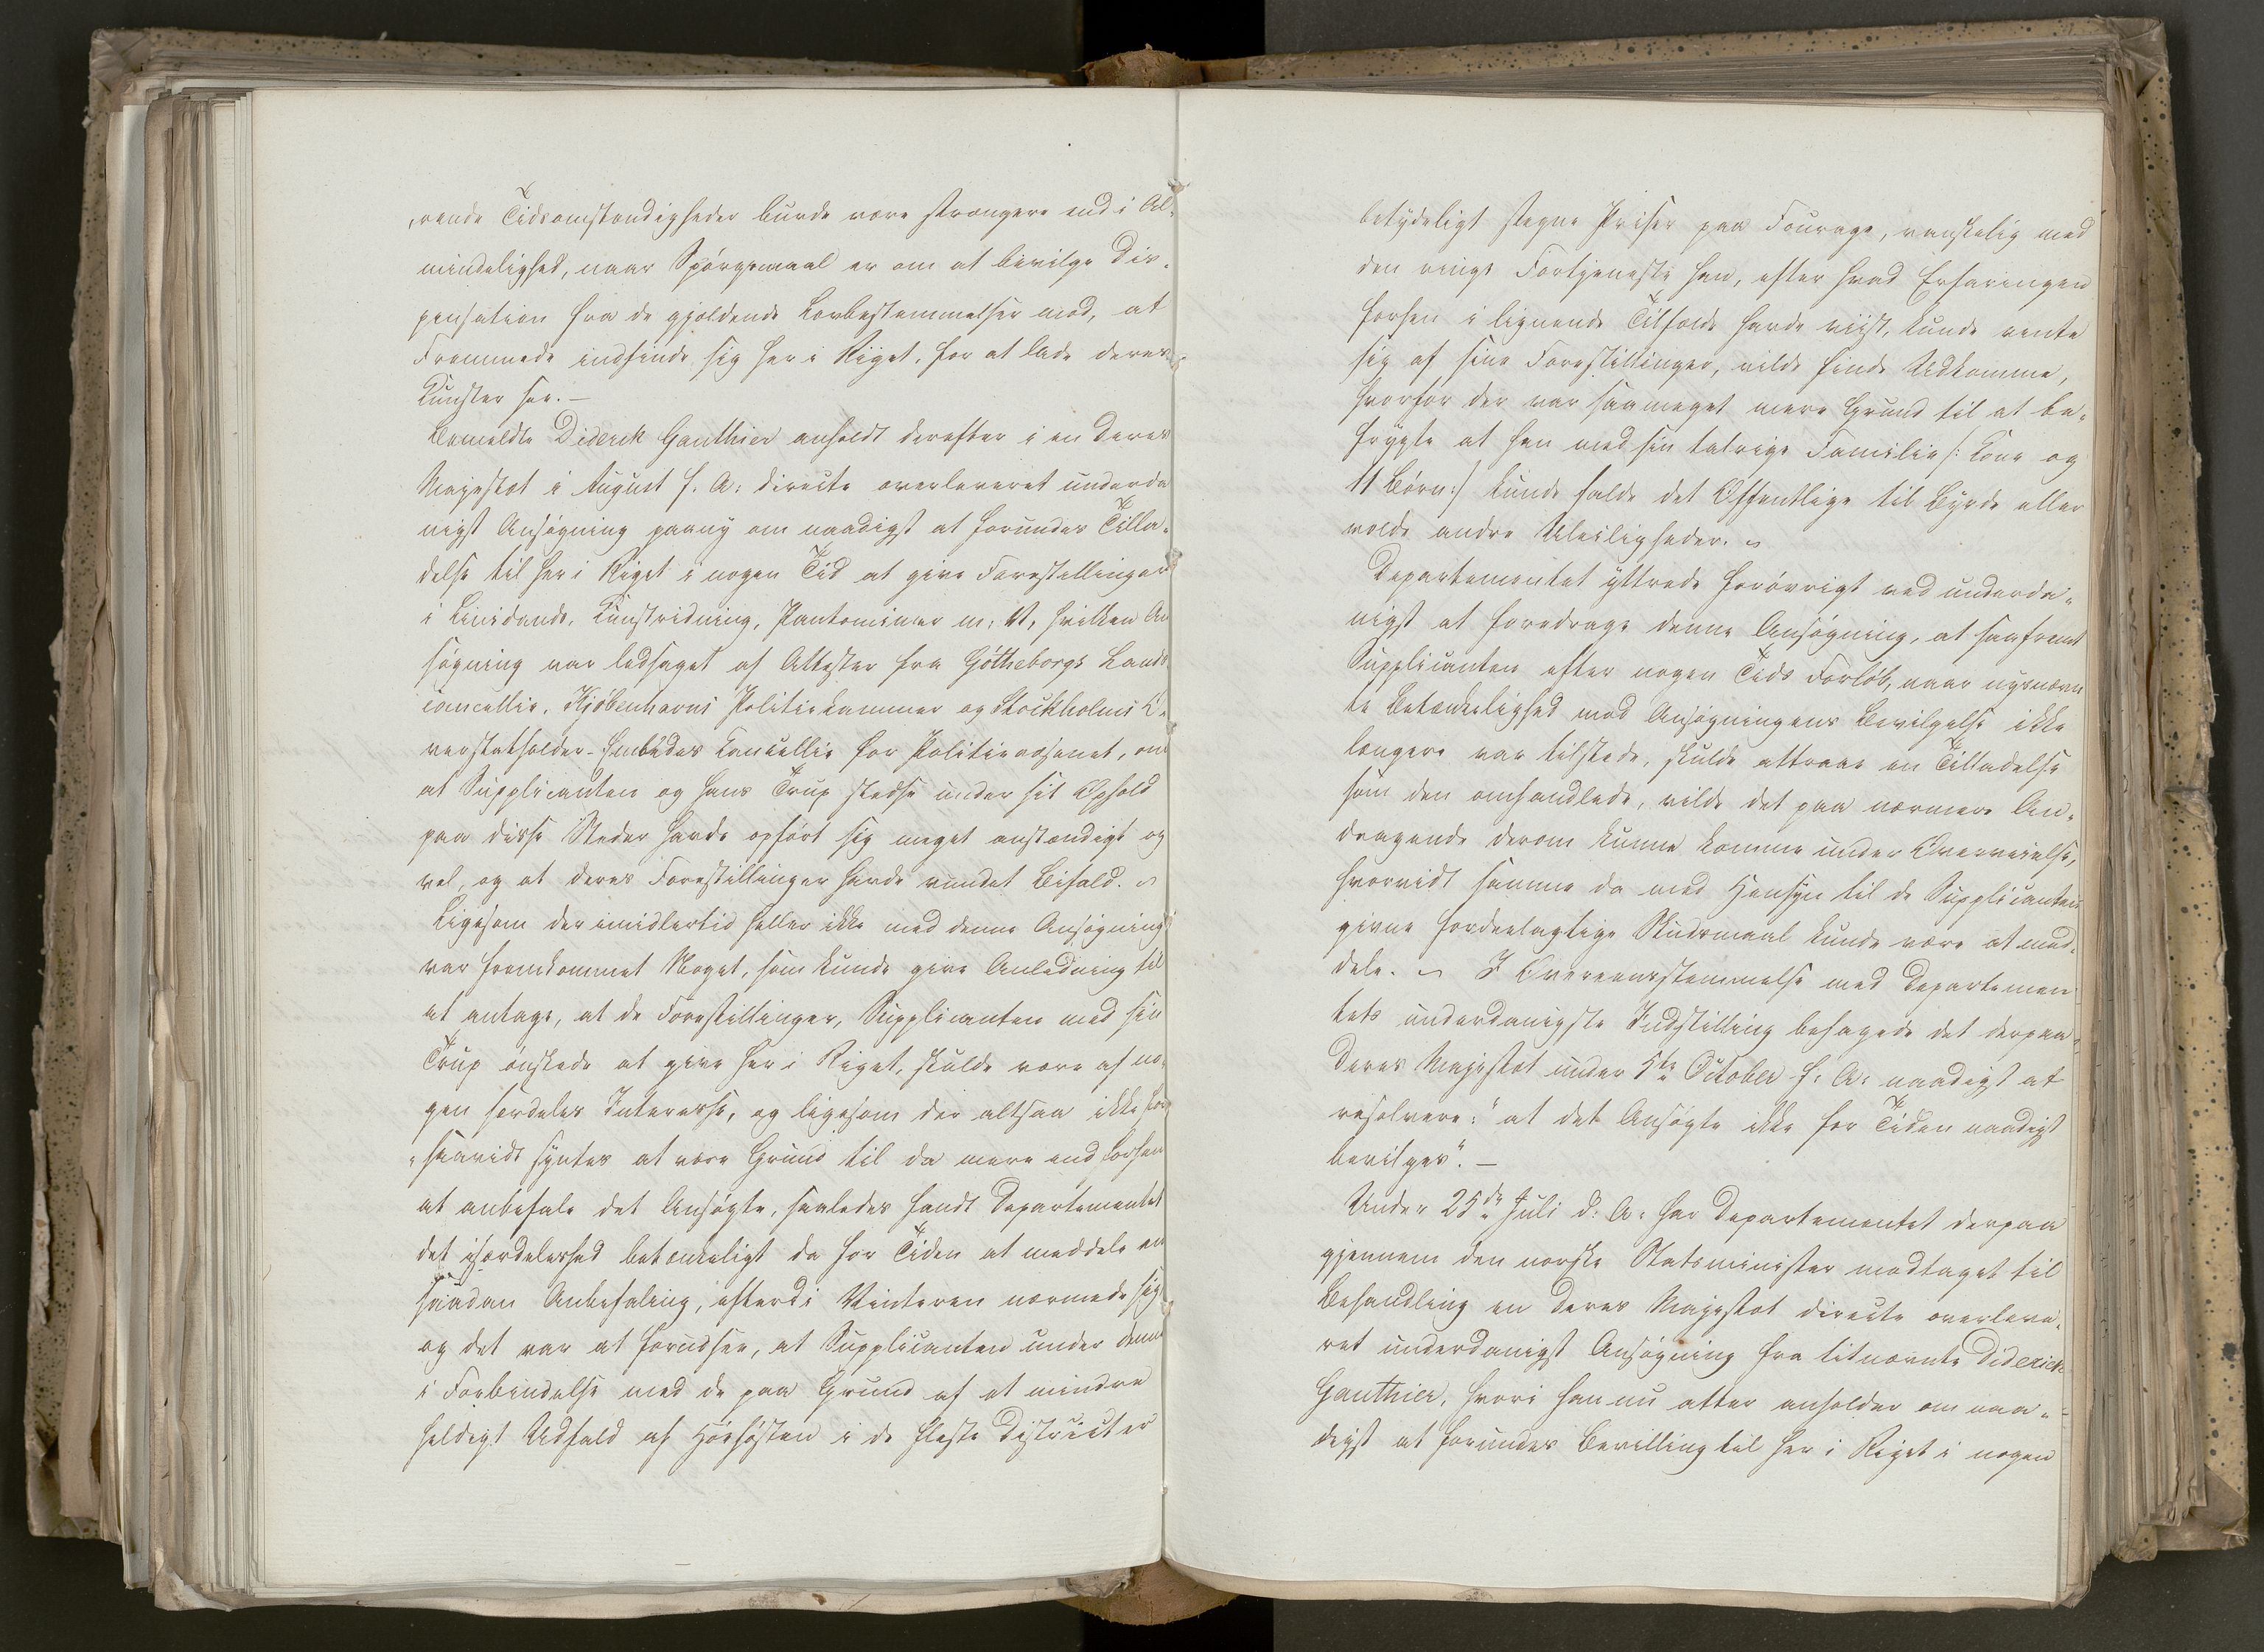 „rende Tidsomstændigheder burde være strængere end i Al„
mindelighed, naar Spörgsmaal er om at bevilge Dis„
pensation fra de gjældende Lovbestemmelser mod, at
Fremmede indfinde sig her i Riget, for at lade deres
Kunster see. —
Bemeldte Diderik Gauthier anholdt derefter i en Deres
Majestæt i August f. A: directe overleveret underda
nigst Ansögning paany om naadigst at forundes Tilla„
delse til her i Riget i nogen Tid at give Forestillinger
i Linidands, Kunstridning, Pantomimer m: V, hvilken An
søgning var ledsaget af Attester fra Götheborgs Lands
cancellie, Kjöbenhavns Politiekammer og Stockholms O„
verstatholder-Embedes Cancellie for Politievæsenet, om
at Supplicanten og hans Trup stedse under sit Ophold
paa disse Steder havde opfört sig meget anstændigt og
vel, og at deres Forestillinger havde vundet Bifald. ~
Ligesom der imidlertid heller ikke med denne Ansögning
var fremkommet Noget, som kunde give Anledning til
at antage, at de Forestillinger, Supplicanten med sin
Trup önskede at give her i Riget, skulde være af no„
gen særdeles Interesse, og ligesom der altsaa ikke for
„saavidt syntes at være Grund til da mere end forhen
at anbefale det Ansögte, saaledes fandt Departementet
det isærdeleshed betænkeligt da for Tiden at meddele en
saadan Anbefaling, efterdi Vinteren nærmede sig
og det var at forudsee, at Supplicanten under denne
i Forbindelse med de paa Grund af et mindre
heldigt Udfald af Höehösten i de fleste Districter
betydeligt stegne Priser paa Fourage, vanskelig med
den ringe Fortjeneste han, efter hvad Erfaringen
forhen i lignende Tilfælde havde viist, kunde vente
sig af sine Forestillinger, vilde finde Udkomme,
hvorfor der var saameget mere Grund til at be„
frygte at han med sin talrige Familie /: Kone og
11 Börn :/ kunde falde det Offentlige til Byrde eller
volde andre Uleiligheder. ~
Departementet yttrede forövrigt ved underda„
nigst at foredrage denne Ansögning, at saafremt
Supplicanten efter nogen Tids Forlöb, naar nysnævn
te Betænkelighed mod Ansögningens Bevilgelse ikke
længere var tilstede, skulde attraae en Tilladelse
som den omhandlede, vilde det paa nærmere An„
dragende derom kunne komme under Overveielse,
hvorvidt samme da med Hensyn til de Supplicanten
givne fordeelagtige Skudsmaal kunde være at med„
dele. ~ I Overeensstemmelse med Departemen
tets underdanigste Indstilling behagede det derpaa
Deres Majestæt under 5te October f: A: naadigst at
resolvere: "at det Ansögte ikke for Tiden naadigst
bevilges". —
Under 25de Juli d: A: har Departementet derpaa
gjennem den norske Statsminister modtaget til
Behandling en Deres Majestæt directe overleve„
ret underdanigst Ansögning fra titnævnte Diderick
Gauthier, hvori han nu atter anholder om naa„
digst at forundes Bevilling til her i Riget i nogen